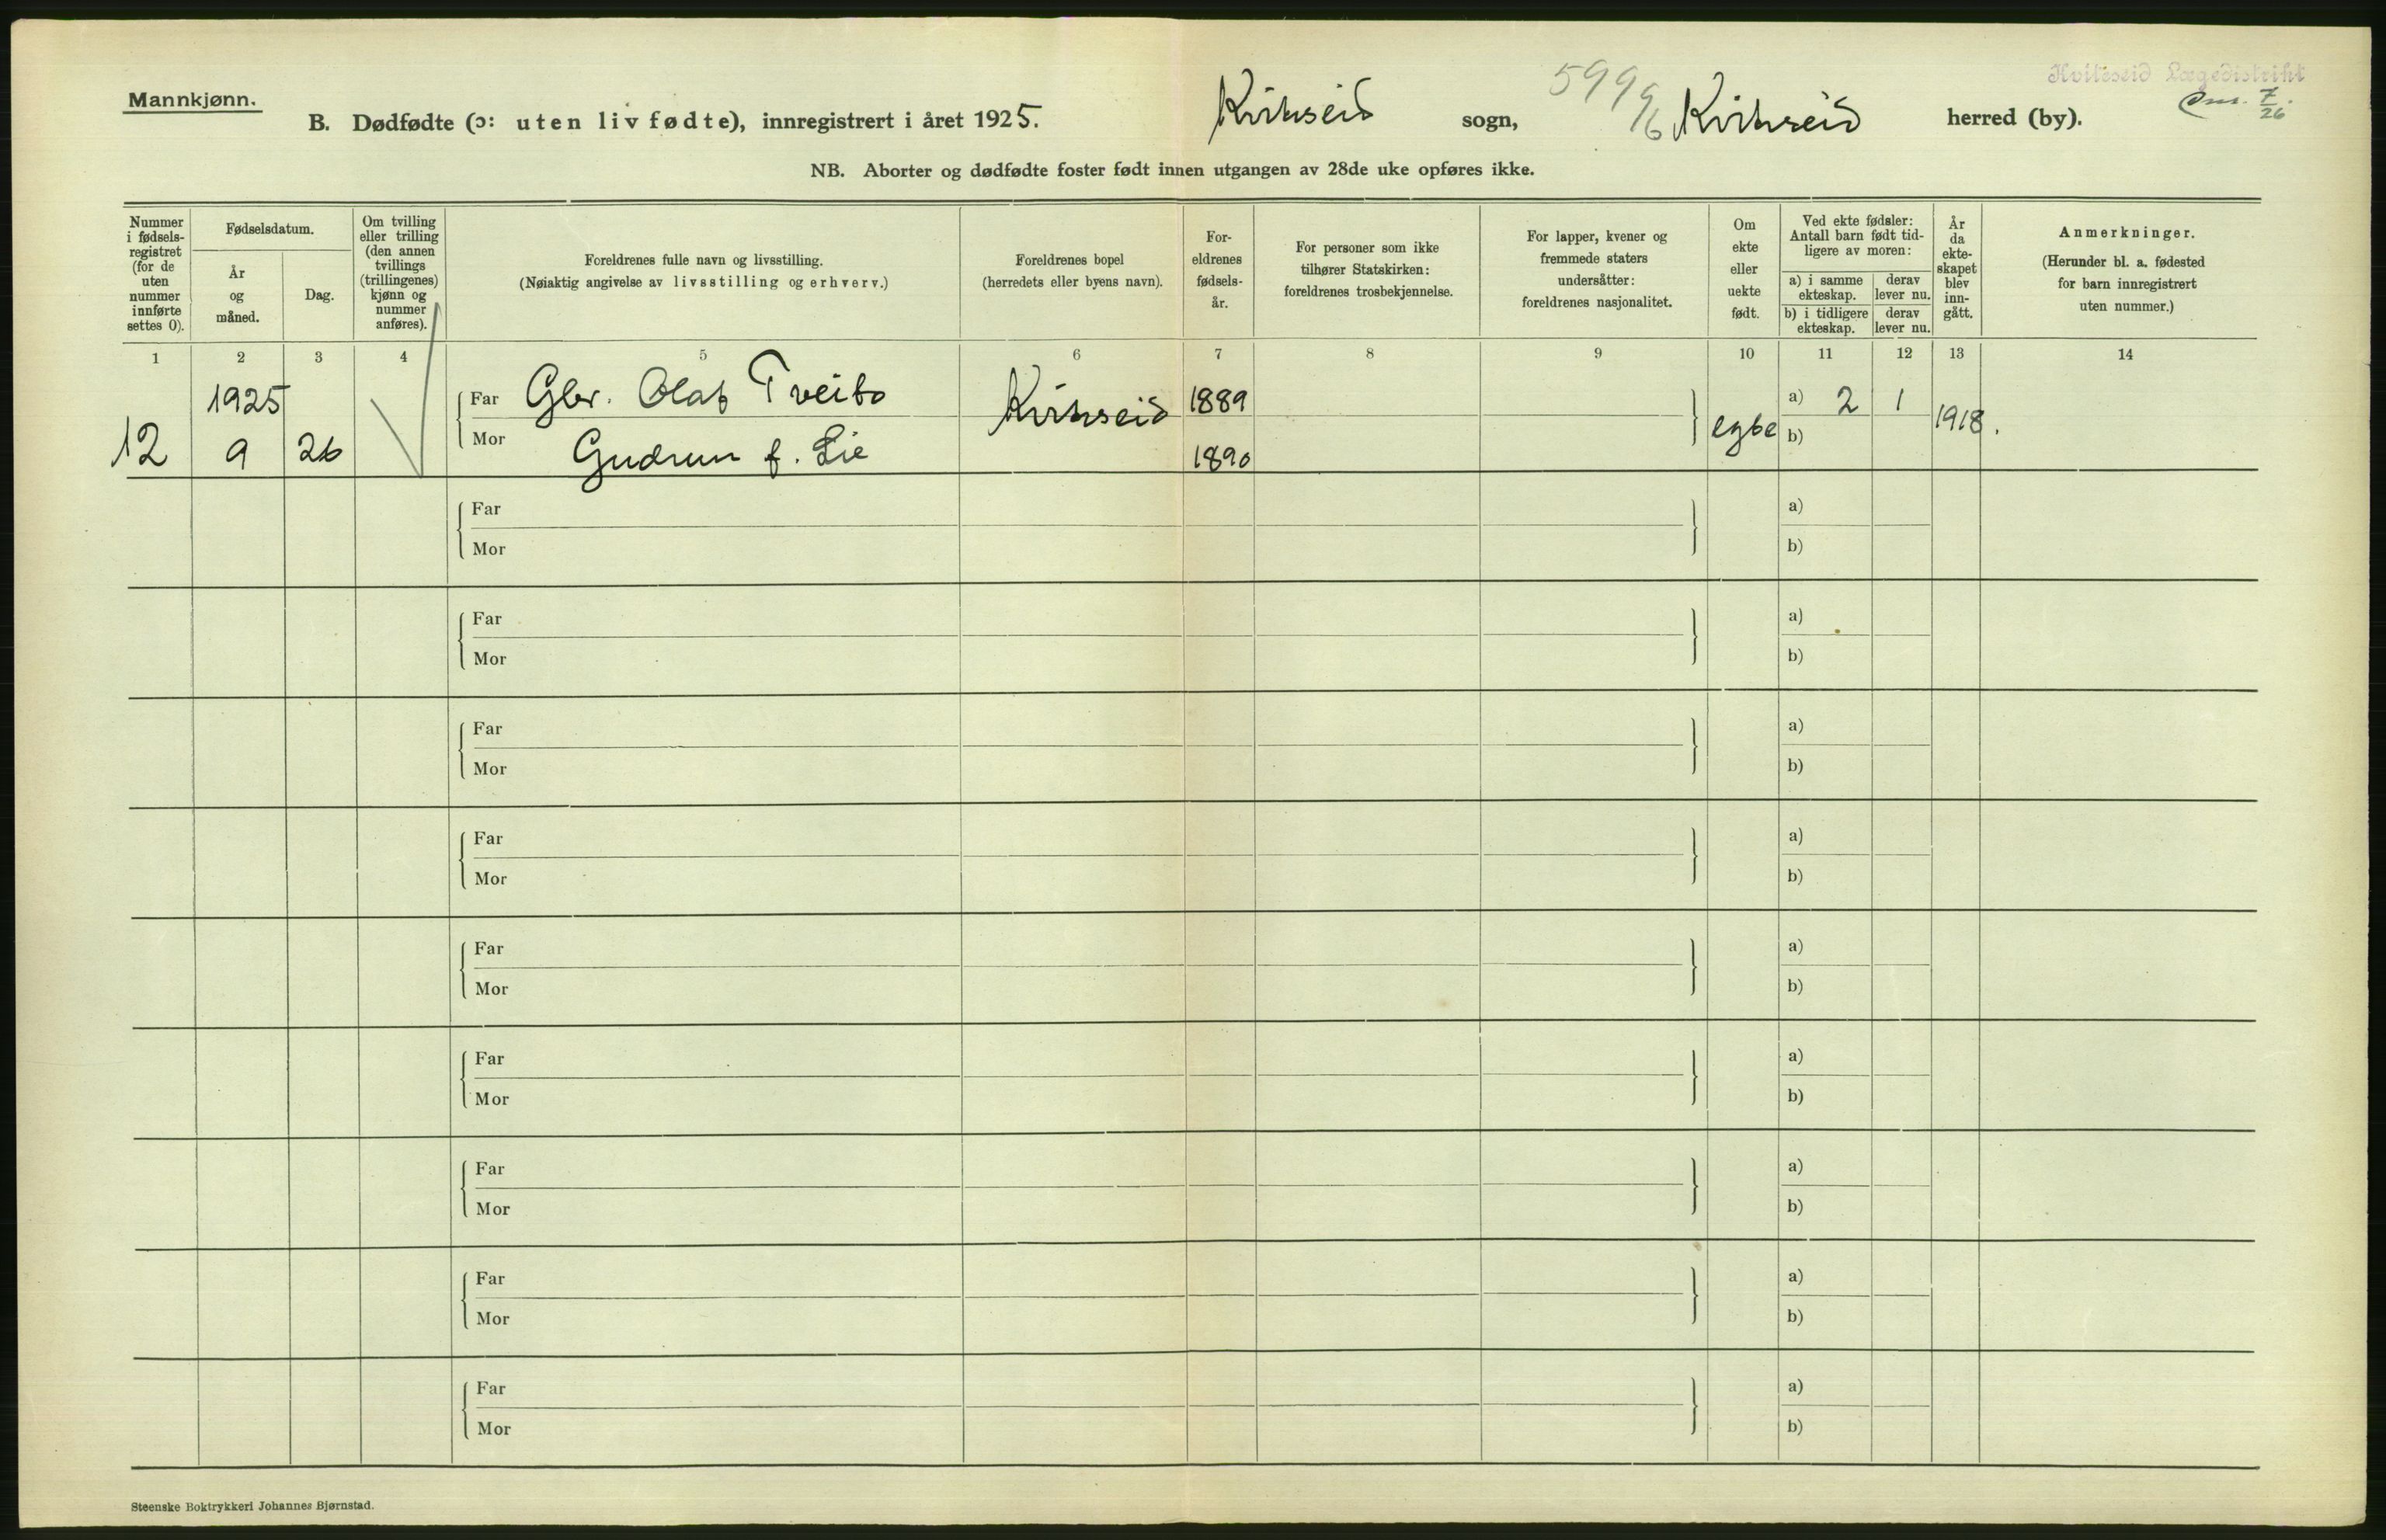 Mannkjønn.
Hviteseid Lægedistrikt
B. Dødfødte (ɔ: uten liv fødte), innregistrert i året 1925. Kviteseid sogn, Kviteseid herred (by).
599 9/6
7/26
NB. Aborter og dødfødte foster født innen utgangen av 28de uke opføres ikke.
Nummer i fødsels-registret (for de uten nummer innførte settes 0).
Fødselsdatum.
År og måned.
Dag.
Om tvilling eller trilling (den annen tvillings (trillingenes) kjønn og nummer anføres).
Foreldrenes fulle navn og livsstilling.
(Nøiaktig angivelse av livsstilling og erhverv.)
Foreldrenes bopel
(herredets eller byens navn).
For-eldrenes fødsels-år.
For personer som ikke tilhører Statskirken: foreldrenes trosbekjennelse.
For lapper, kvener og fremmede staters undersåtter: foreldrenes nasjonalitet.
Om ekte eller uekte født.
Ved ekte fødsler: Antall barn født tid-ligere av moren:
a) i samme ekteskap.
derav lever nu.
b) i tidligere ekteskap.
derav lever nu.
År da ekte-skapet blev inn-gått.
Anmerkninger.
(Herunder bl. a. fødested for barn innregistrert uten nummer.)
1 2 3 4 5 6 7 8 9 10 11 12 13 14
1925 Far Gbr. Olaf Tveito Kviteseid 1889 a) 2 1
12 9 26 Mor Gudrun f. Lie 1890 egte b) 1918.
Far a)
Mor b)
Far a)
Mor b)
Far a)
Mor b)
Far a)
Mor b)
Far a)
Mor b)
Far a)
Mor b)
Far a)
Mor b)
Far a)
Mor b)
Far a)
Mor b)
Steenske Boktrykkeri Johannes Bjørnstad.